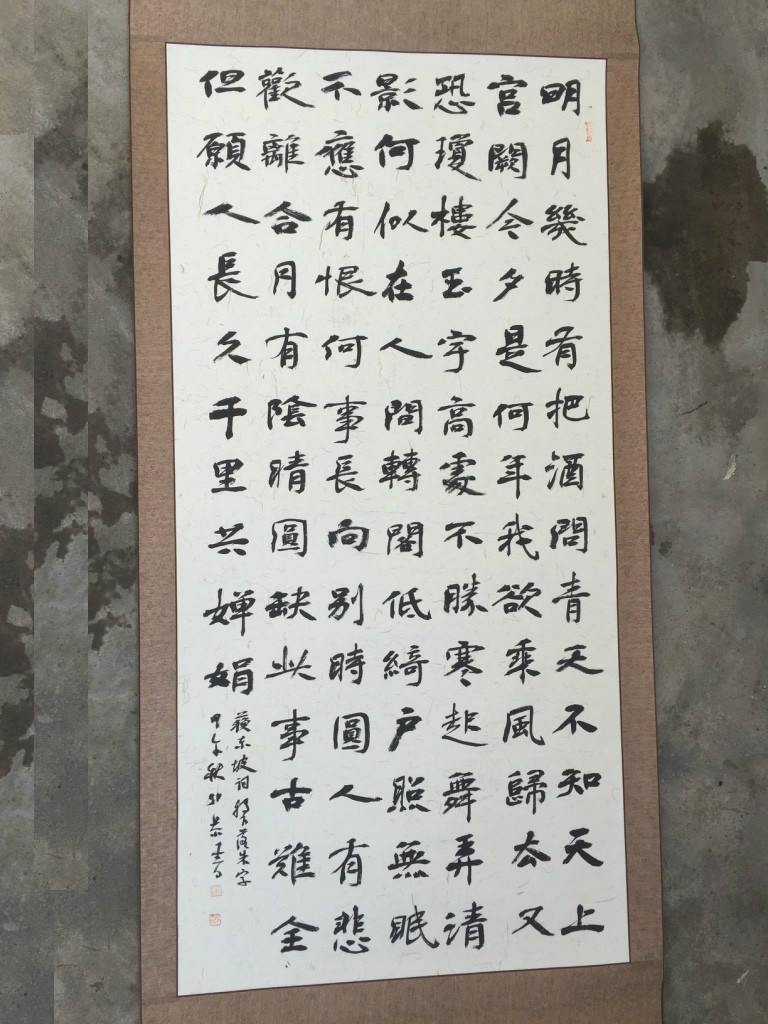 明月幾時有把酒問青天不知天上
宮闕今夕是何年我欲乘風歸去又
恐瓊樓玉宇高處不勝寒起舞弄清
影何似在人間轉閣低綺戶照無眠
不應有恨何事長向別時圓人有悲
歡離合月有陰晴圓缺此事古難全
但願人長久千里共嬋娟
蘇東坡詞轉下落朱字
甲午秋